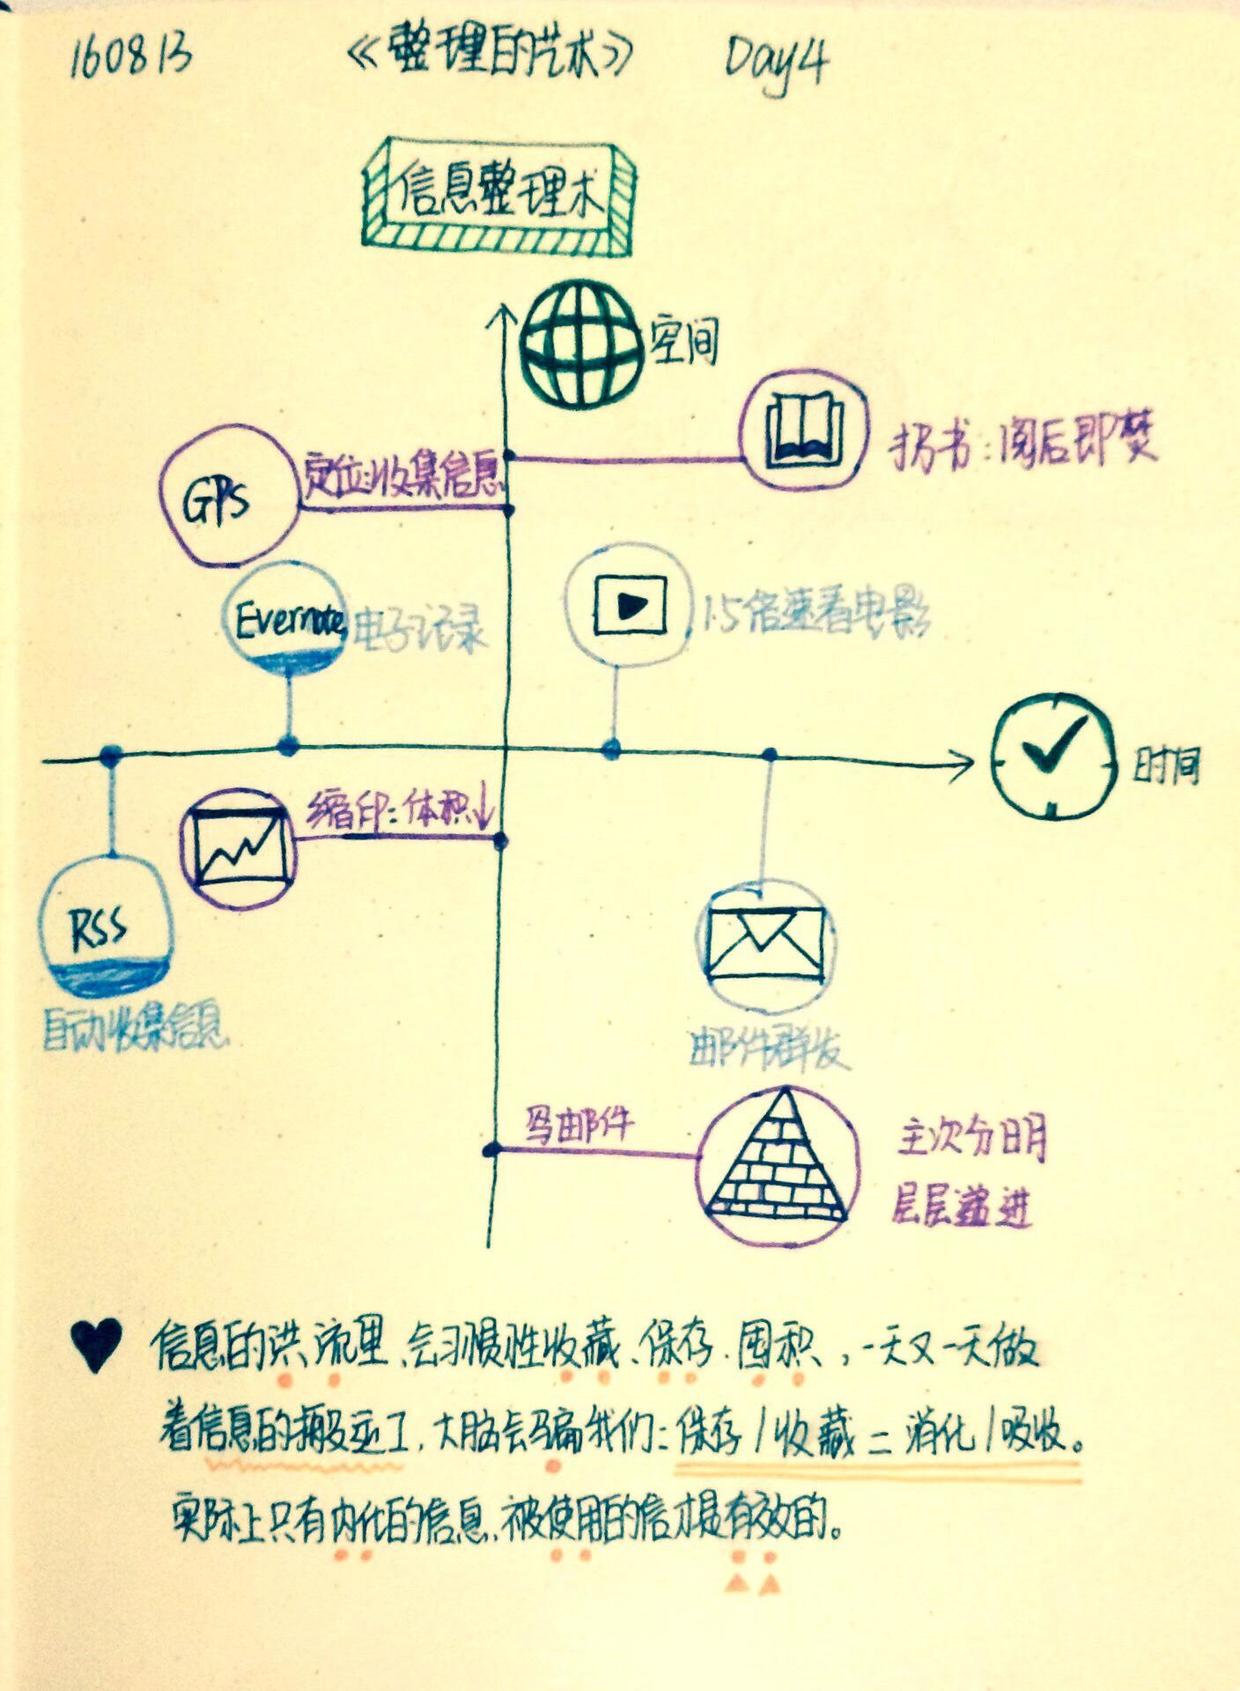 160813 《整理的艺术》 Day4
信息整理术
空间
扔书：阅后即焚
GPS 定位：收集信息
Evernote 电子记录
1.5倍速看电影
时间
缩印：体积↓
RSS
自动收集信息
邮件群发
写邮件
主次分明
层层递进
信息的洪流里、会习惯性收藏、保存、囤积、，一天又一天做
着信息的搬运工，大脑会骗我们：保存/收藏=消化/吸收。
实际上只有内化的信息、被使用的信才是有效的。